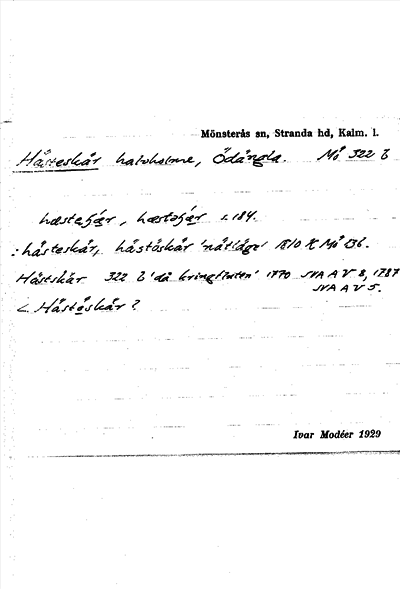 Mönsterås sn, Stranda hd, Kalm. l.
Hästeskär halvholme, Ödängla. Mö 322 b
hæsteʃæ̣r, hæstøʃæ̣r s. 184.
: hästeskär, hästöskär 'nätläge' 1810 K Mö 136.
Hästskär 322 b 'då kringfluten' 1770 SVA A V 8, 1787
SVA A V 5.
< Hästöskär?
Ivar Modéer 1929